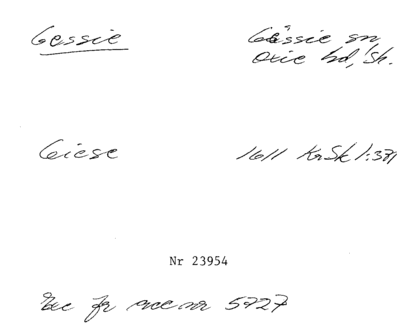 Gessie
Gässie sn
Oxie hd, Sk.
Giese 1611 KrSk 1:371
Nr 23954
Exc fr acc nr 5727